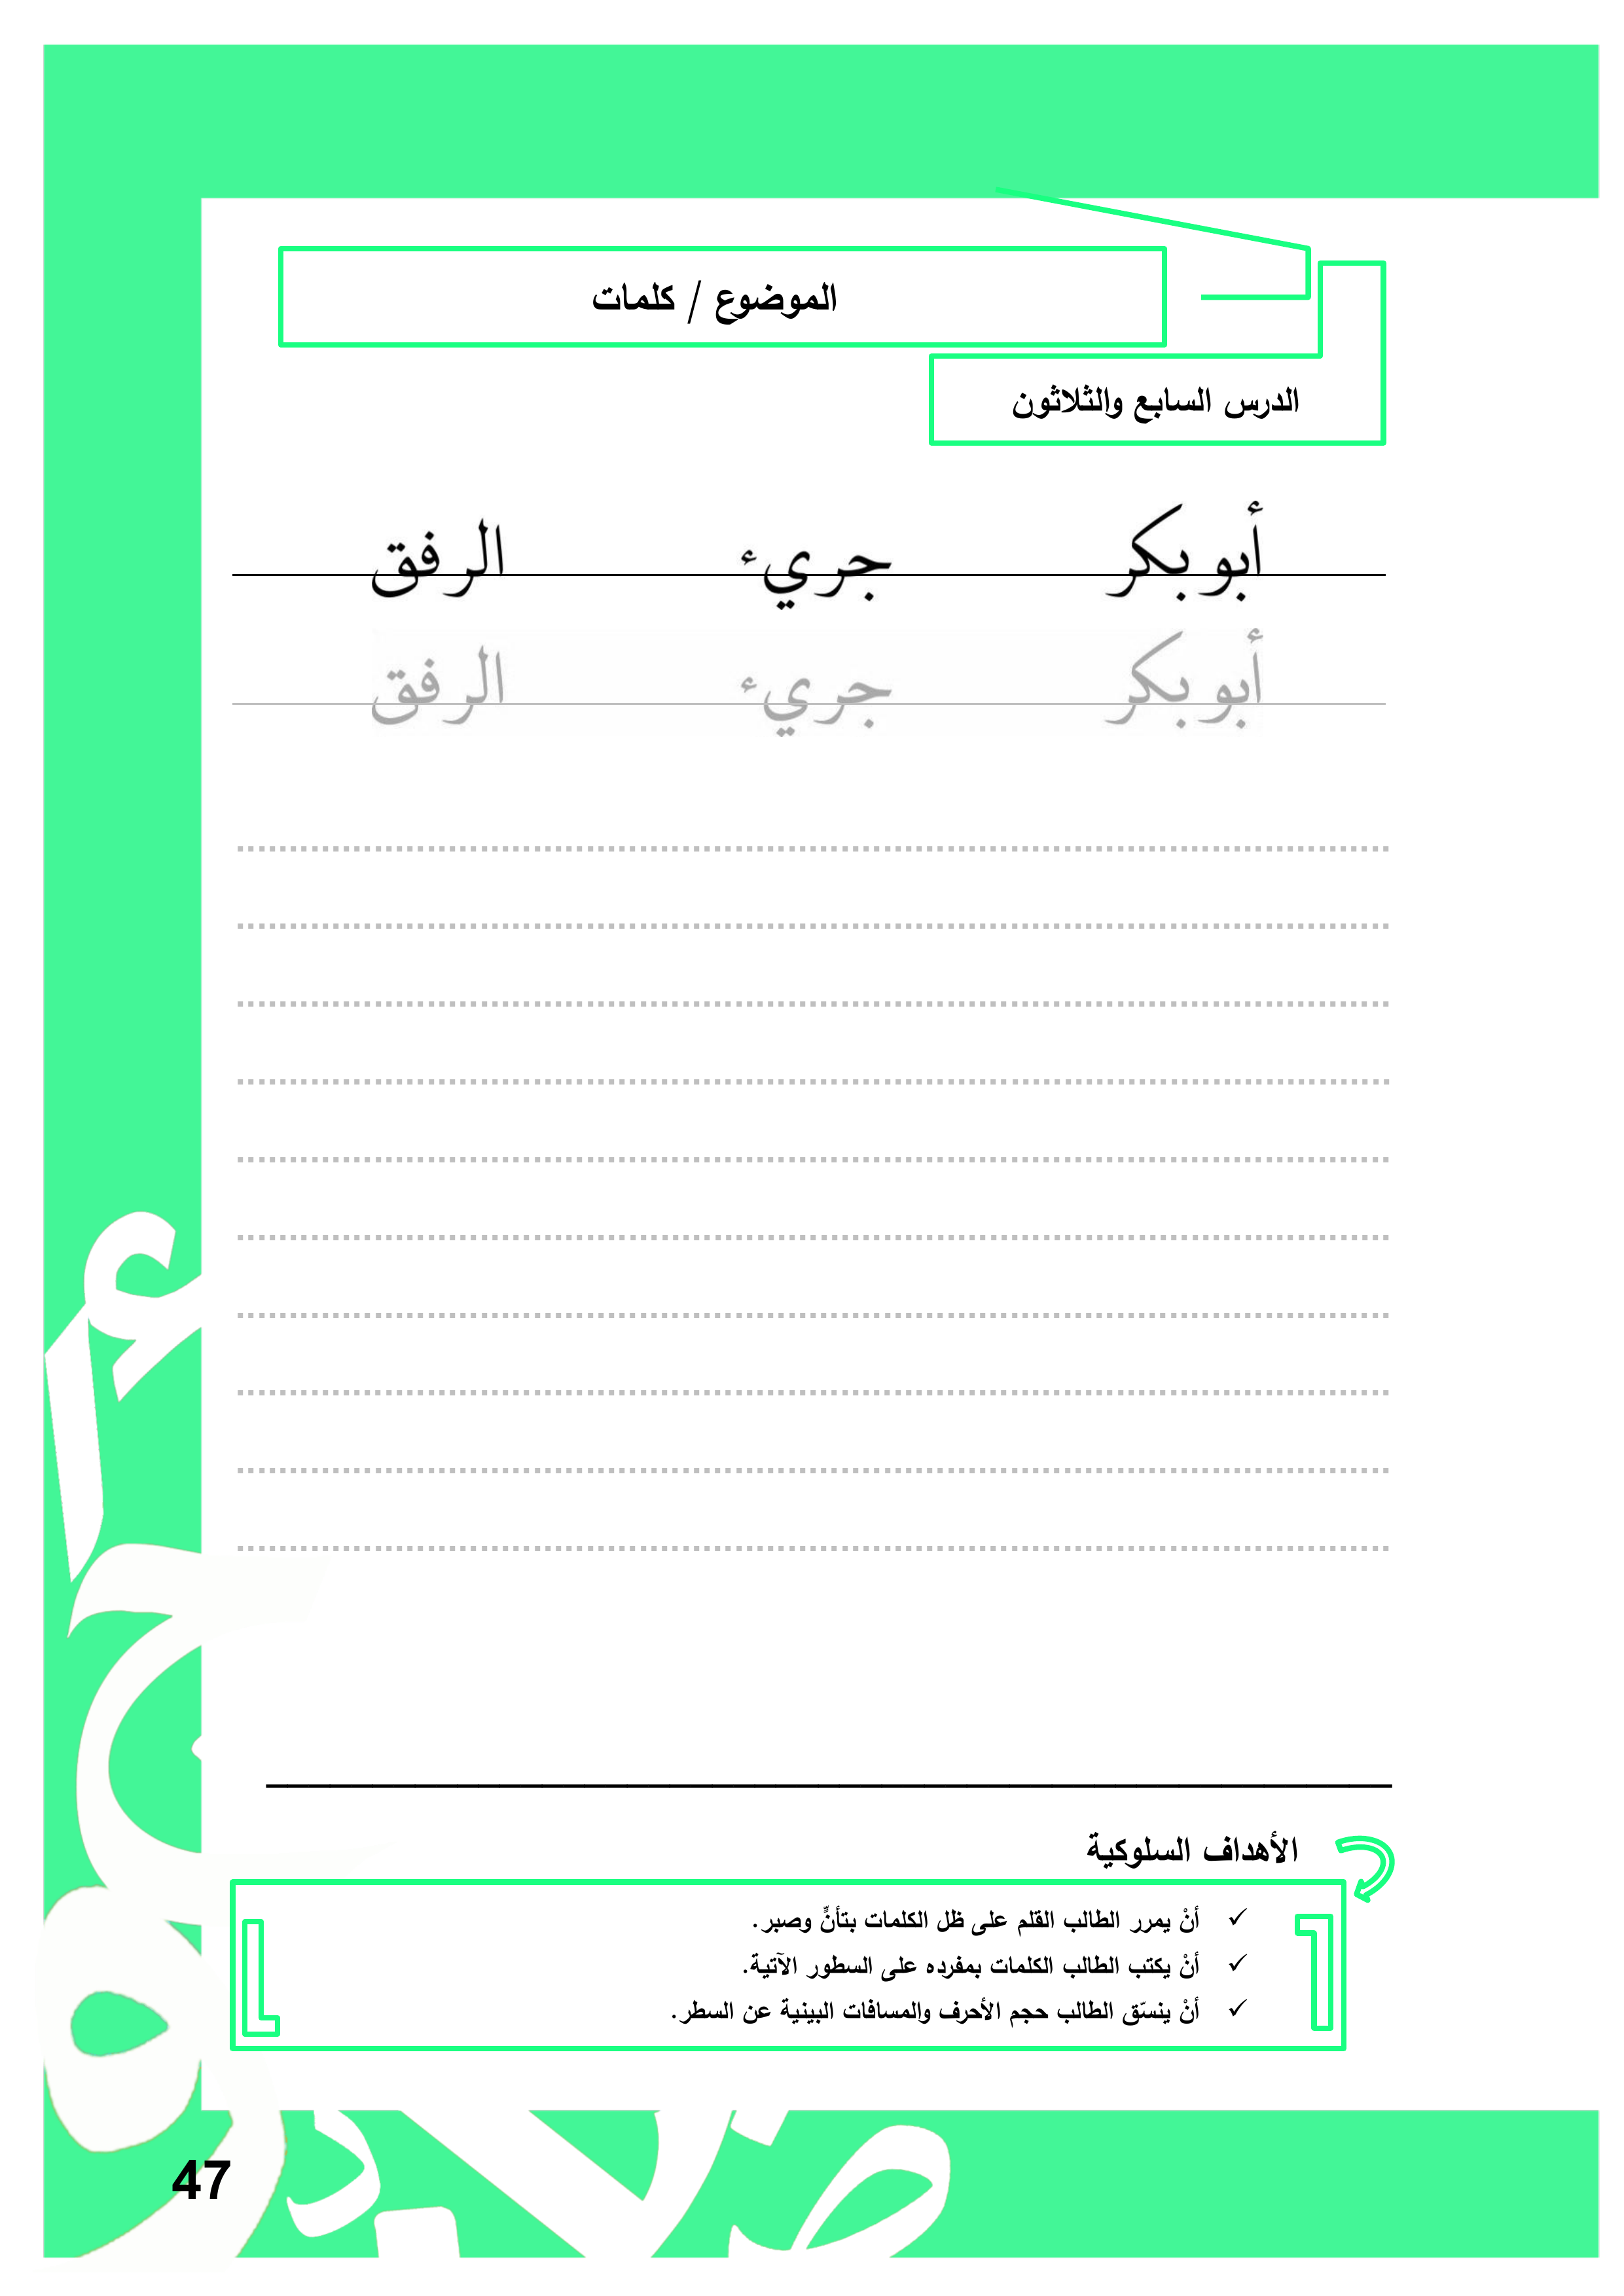 الموضوع / كلمات
الدرس السابع والثلاثون
أبو بكر جريء الرفق
أبو بكر جريء الرفق
الأهداف السلوكية
✓ أنْ يمرر الطالب القلم على ظل الكلمات بتأنٍّ وصبر.
✓ أنْ يكتب الطالب الكلمات بمفرده على السطور الآتية.
✓ أنْ ينسّق الطالب حجم الأحرف والمسافات البينية عن السطر.
47